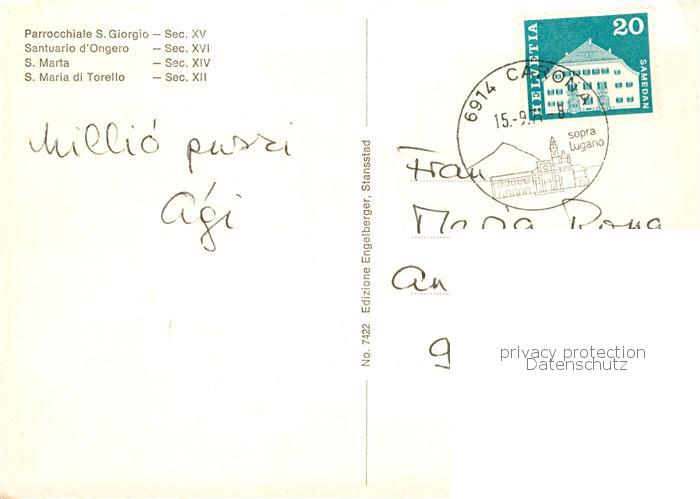 Parrocchiale S. Giorgio – Sec. XV
Santuario d'Ongero – Sec. XVI
S. Marta – Sec. XIV
S. Maria di Torello – Sec. XII
Millió puszi
Ági
No. 7422 Edizione Engelberger, Stansstad
HELVETIA
20
SAMEDAN
6914 CARONA
15.-9.
-8
sopra
Lugano
Frau
Maria
An
9
privacy protection
Datenschutz